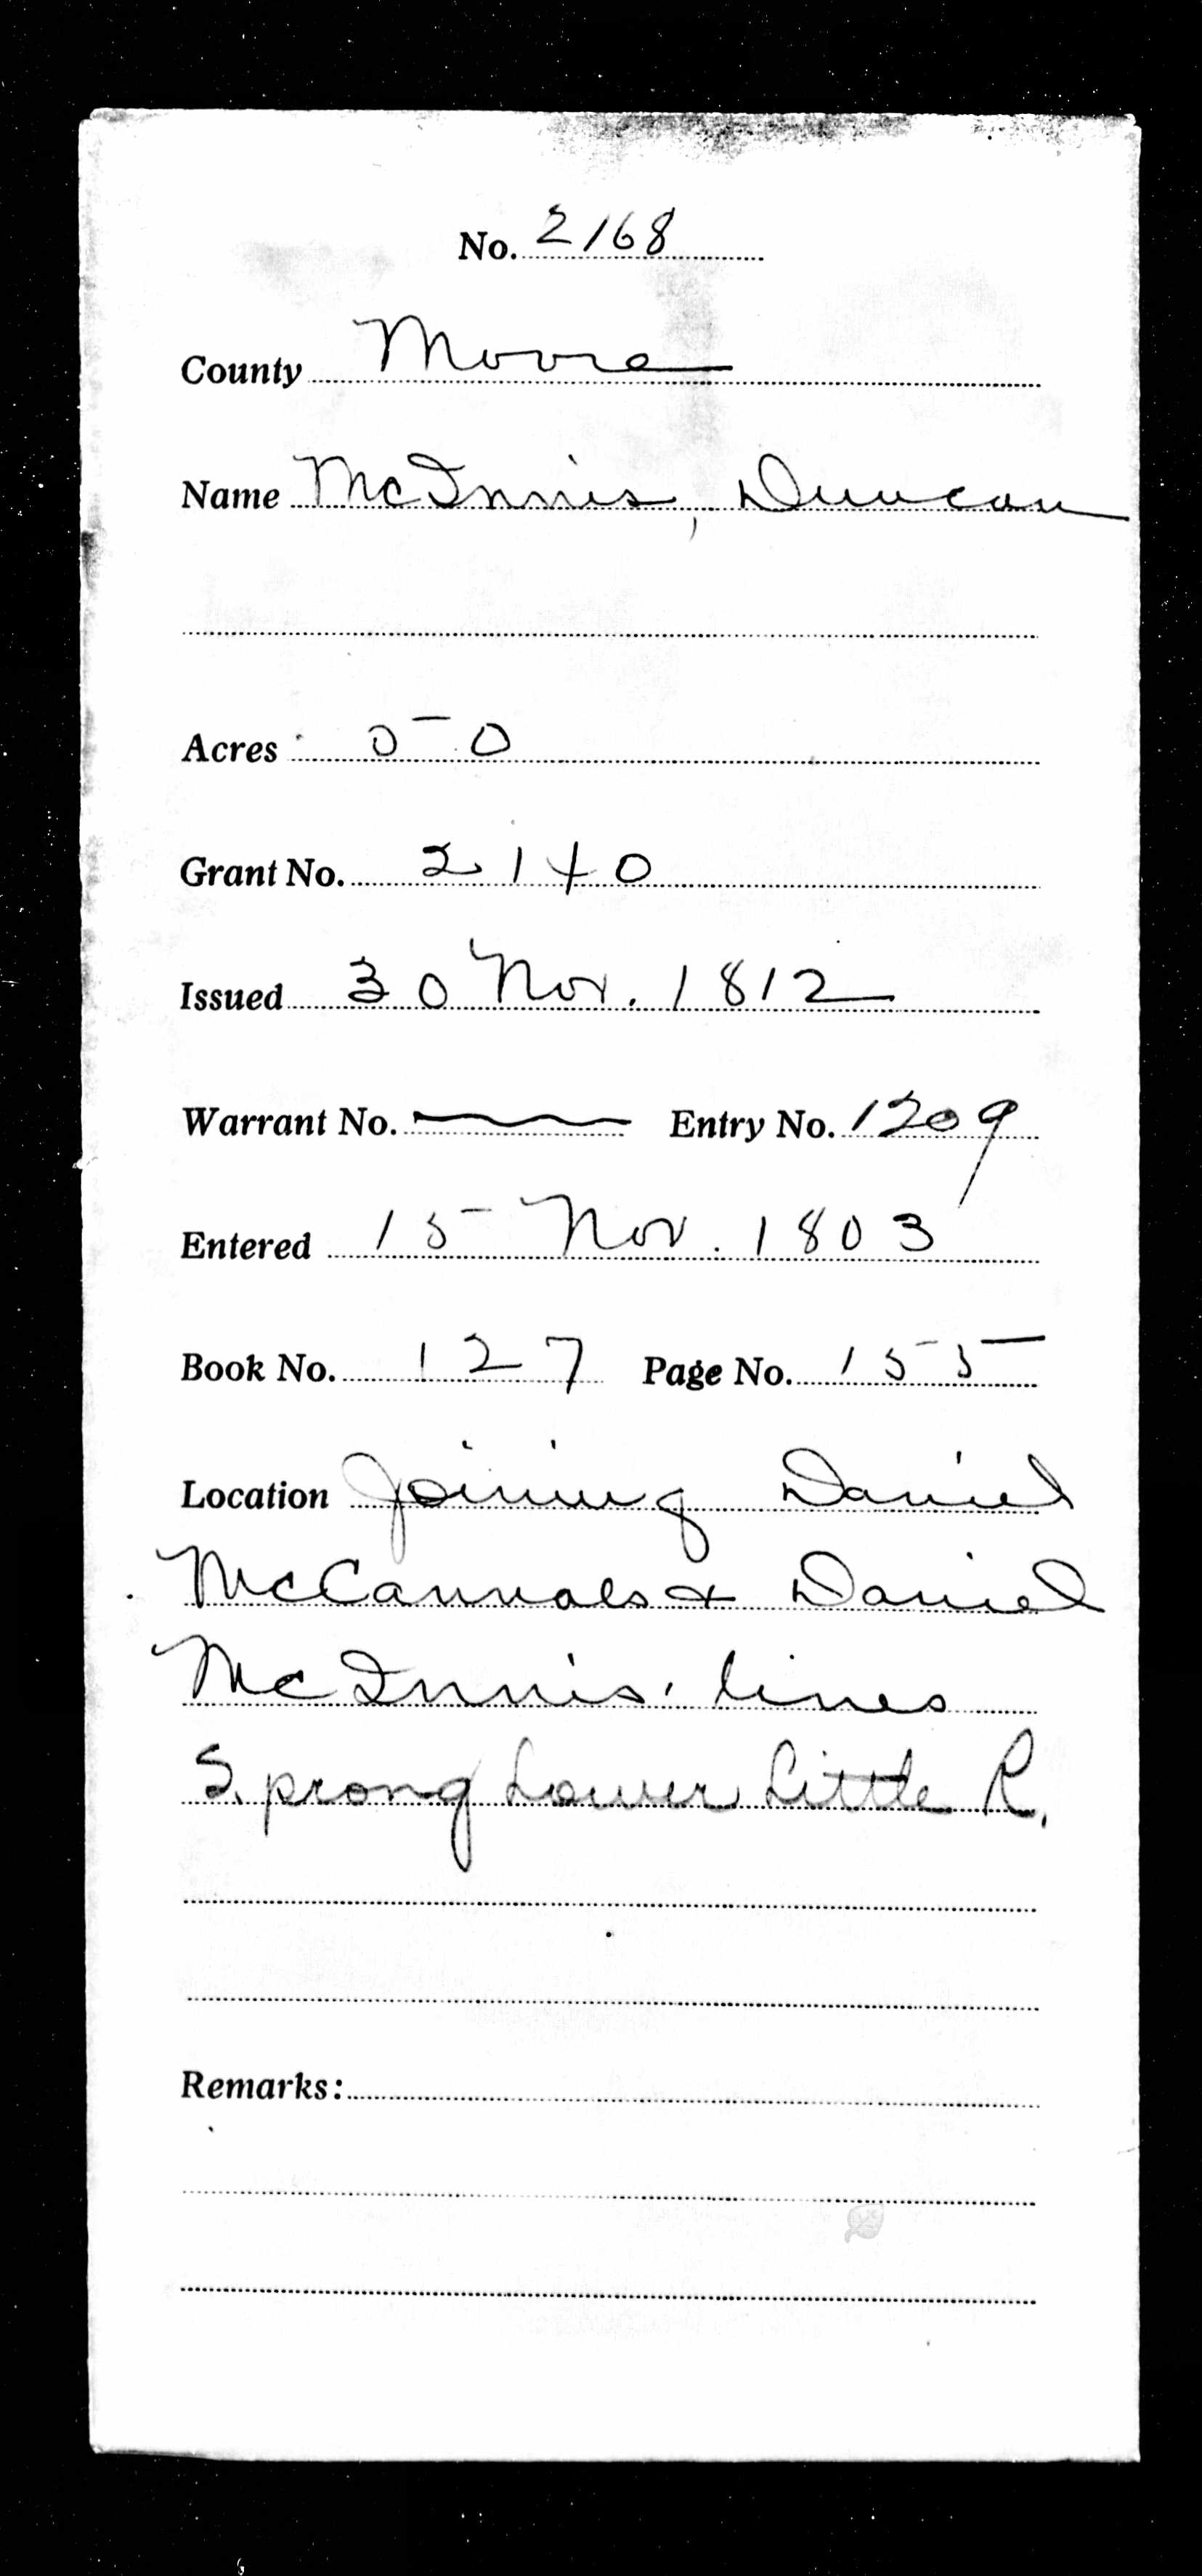 No. 2168
County Moore
Name McInnis, Duncan
Acres 50
Grant No. 2140
Issued 30 Nov. 1812
Warrant No. Entry No. 1209
Entered 15 Nov. 1803
Book No. 127 Page No. 155
Location Joining Daniel
McCannals & Daniel
McInnis' lines
S. prong Lower Little R.
Remarks: